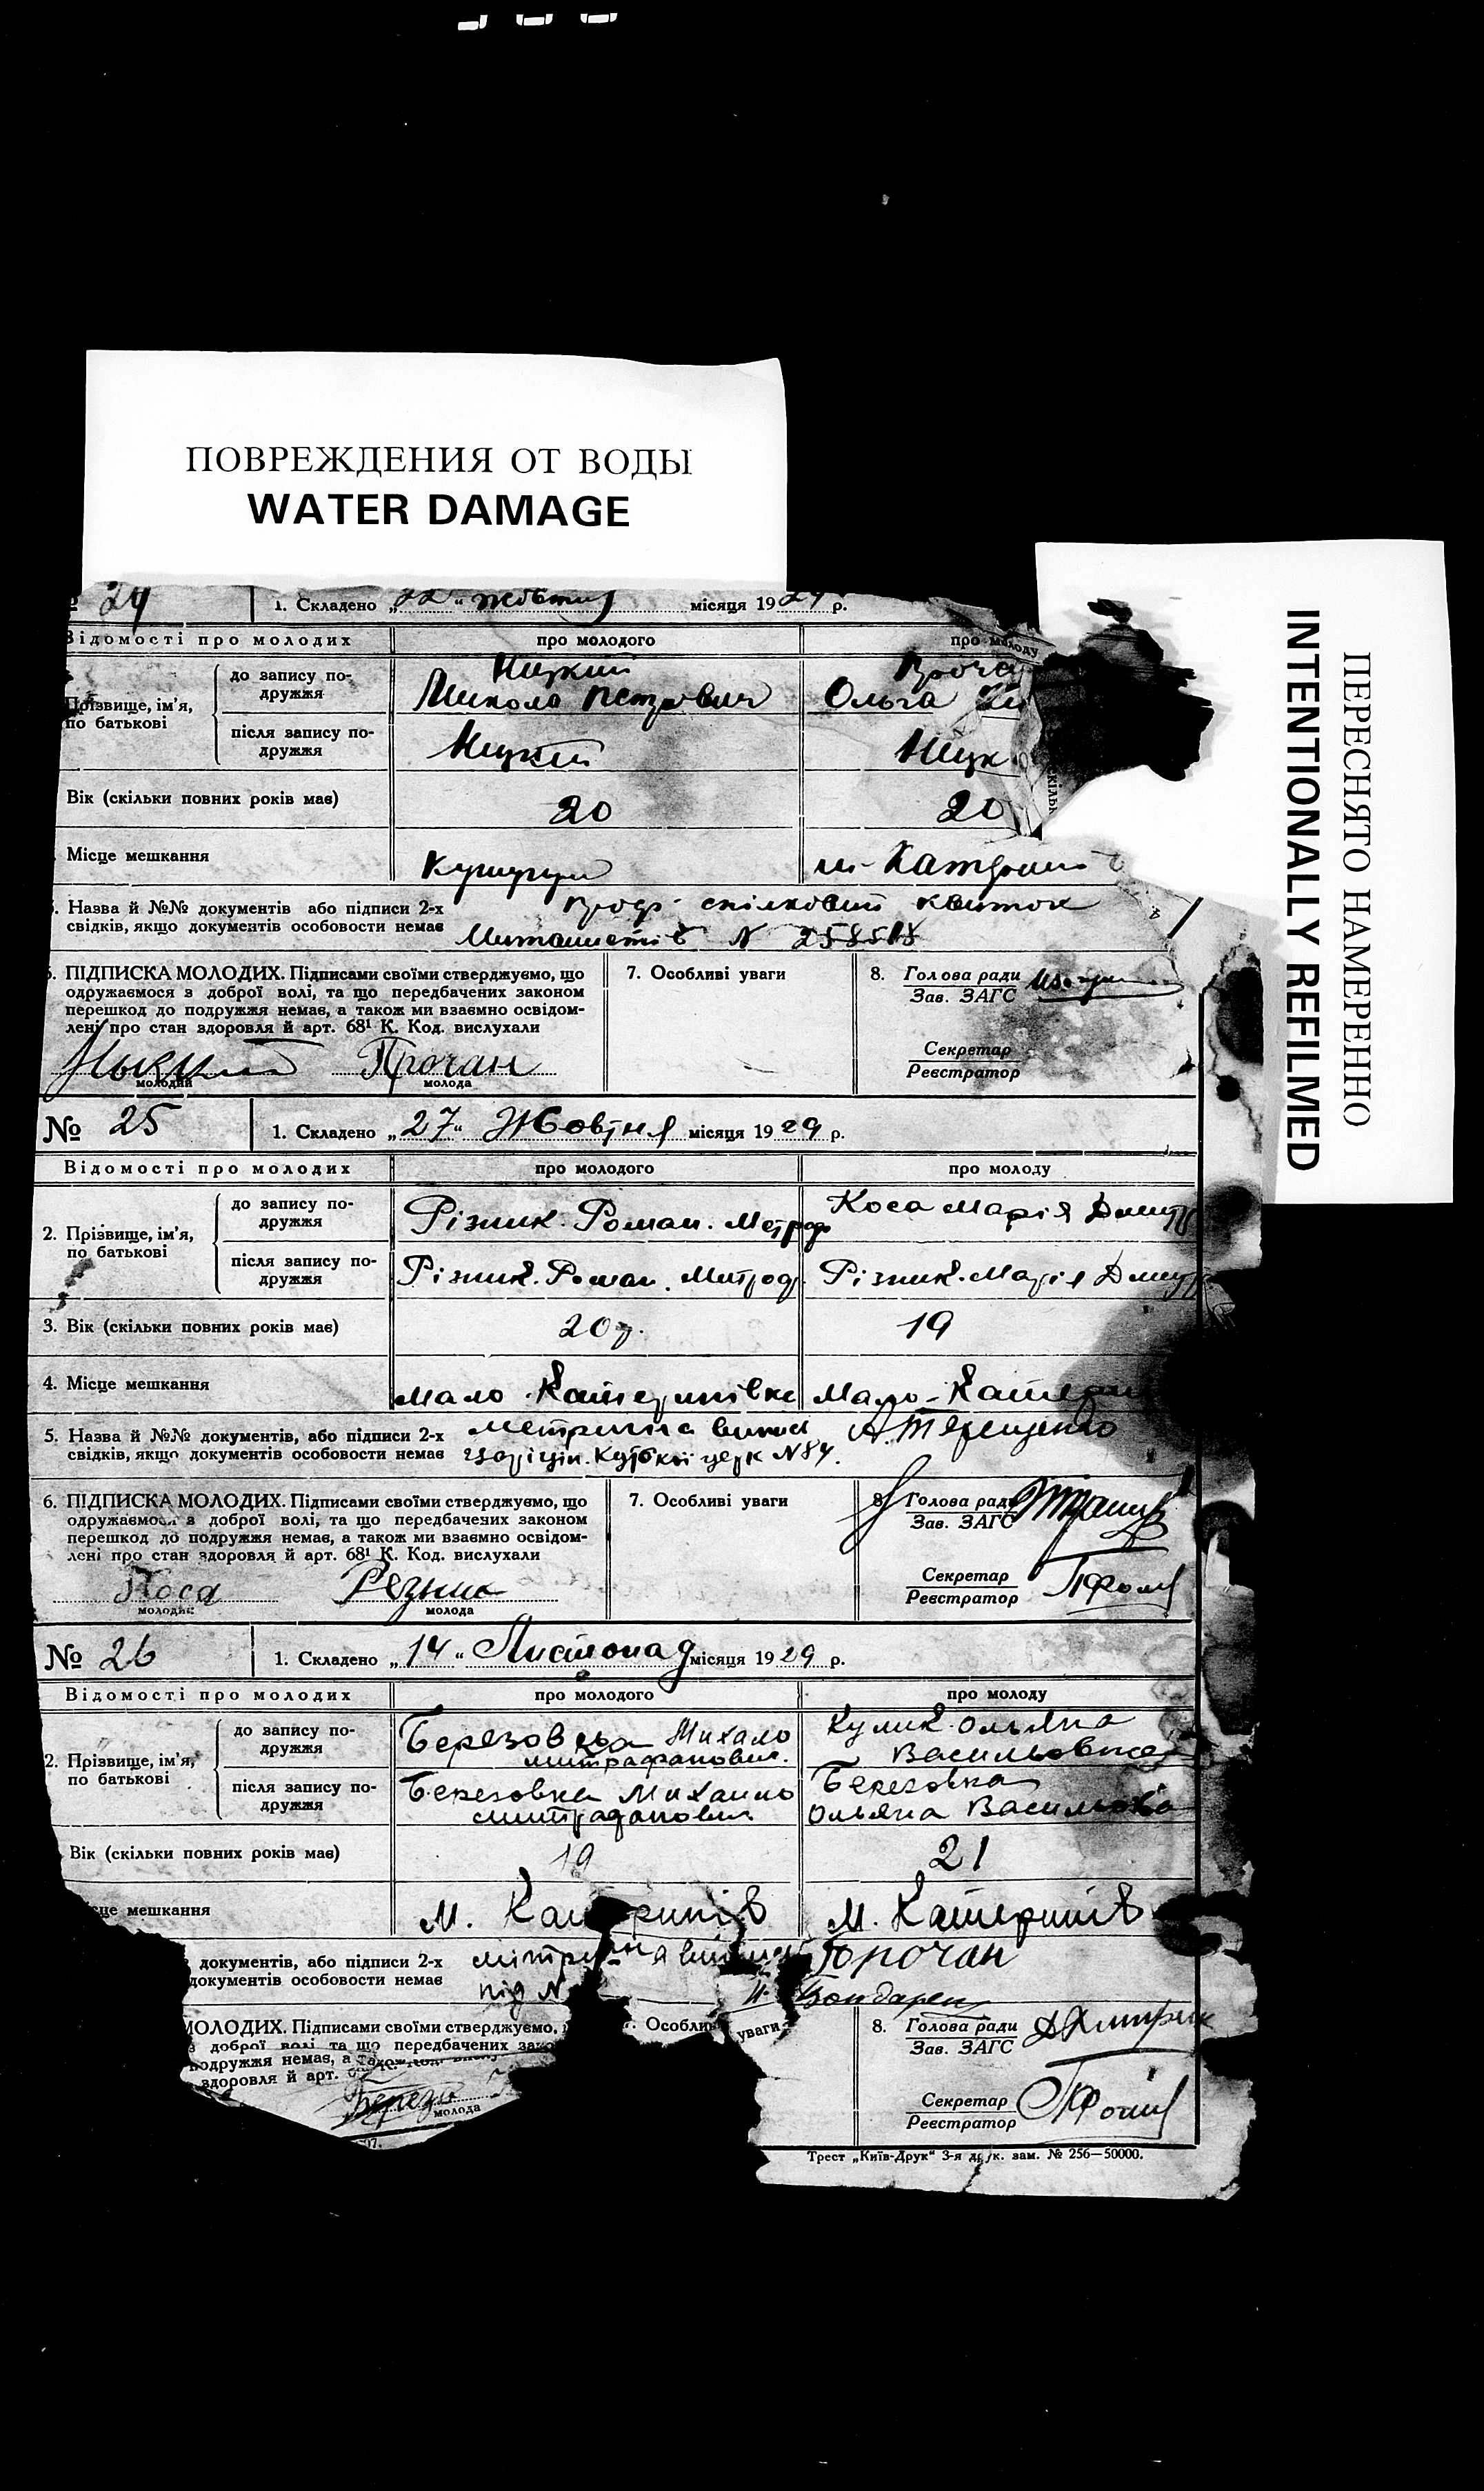 ПОВРЕЖДЕНИЯ ОТ ВОДЫ
WATER DAMAGE
ПЕРЕСНЯТО НАМЕРЕННО
INTENTIONALLY REFILMED
24 1. Складено „22“ жовтня місяця 1929 р.
Відомості про молодих про молодого про молоду
Прізвище, ім'я, по батькові
до запису подружжя
Микола Петрович Ольга
після запису подружжя
Вік (скільки повних років має) 20 20
Місце мешкання Кушугум
Назва й №№ документів або підписи 2-х проф. спілковий квиток
свідків, якщо документів особовости немає №
ПІДПИСКА МОЛОДИХ. Підписами своїми стверджуємо, що 7. Особливі уваги 8. Голова ради
одружаємося з доброї волі, та що передбачених законом Зав. ЗАГС
перешкод до подружжя немає, а також ми взаємно освідом-
лені про стан здоровля й арт. 68¹ К. Код. вислухали Секретар
Реєстратор
Прочан
молодий молода
№ 25 1. Складено „27“ Жовтня місяця 1929 р.
Відомості про молодих про молодого про молоду
2. Прізвище, ім'я, по батькові
до запису подружжя Різник Роман Митроф Коса Марія Дмитр
після запису подружжя Різник Роман Митроф Різник Марія Дмитр
3. Вік (скільки повних років має) 20 р. 19
4. Місце мешкання Мало-Катеринівка Мало-Катерин
5. Назва й №№ документів, або підписи 2-х Метрична випис А. Терещенко
свідків, якщо документів особовости немає церк №84.
6. ПІДПИСКА МОЛОДИХ. Підписами своїми стверджуємо, що 7. Особливі уваги 8. Голова ради
одружаємося з доброї волі, та що передбачених законом Зав. ЗАГС
перешкод до подружжя немає, а також ми взаємно освідом-
лені про стан здоровля й арт. 68¹ К. Код. вислухали Секретар
Реєстратор
Коса Резник
молодий молода
№ 26 1. Складено „14“ Листопад місяця 1929 р.
Відомості про молодих про молодого про молоду
2. Прізвище, ім'я, по батькові
до запису подружжя Михало Кулик Ольяна
Митрафанович. Васильовна
після запису подружжя Березовка Михайло Березовка
Митрафанович Ольяна Васильовна
Вік (скільки повних років має) 19 21
це мешкання М. Катеринів М. Катеринів
документів, або підписи 2-х Прочан
документів особовости немає під № Бондарен
МОЛОДИХ. Підписами своїми стверджуємо, Особлив уваги 8. Голова ради
доброї волі та що передбачених зако Зав. ЗАГС
подружжя немає, а також
здоровля й арт. Секретар
Реєстратор
Березо
молода
Трест „Київ-Друк“ 3-я друк. зам. № 256—50000.